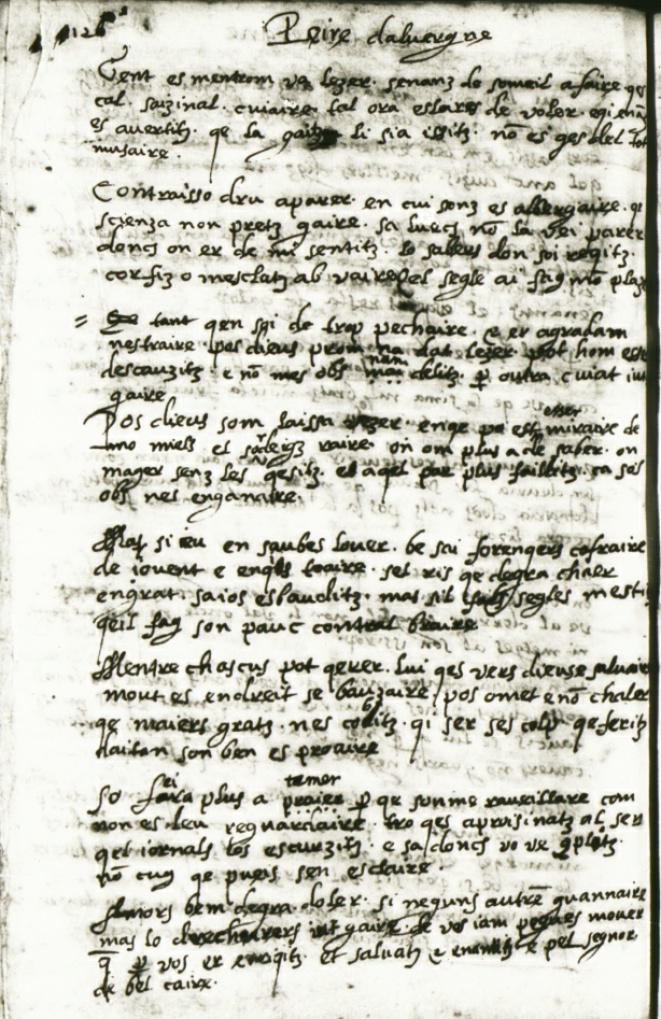 126
Peire daluergne
Gent es mentrom va lezer. senanz de someil afaire qes
cal. saizinal. cuiaire. tal ora estares de voler. egienan
es auertitz. qe la li sia issitz. nō es ges del tot
musaire.
Contraisso dru aparer. en cui sonz es albergaire. qe
scienza non pretz gaire. sa luecs nō la vei parer
doncs on er de mi sentitz. lo sabers don soi regitz.
cor fiz o mesclatz ab vaire qel segle ai faig mō plazer
= tant qen soi de trop pechaire. e er agradam
nestraire. pos dieus prom na dat lezer. pot hom esser
descauzitz. e nō mes obs nom delitz. ꝑ outra cuiat
gaire
Pos dieus som laissa vezer. enqe po esser miraire de
uno miels el sordeigz raire. on om plus a de saber. on
mager senz les qesitz. es aqel par plus faillitz. ca sos
obs nes enganaire.
Mas si eu en saubes lover. be sai forengers cofraire
de iouent e engels toaire. sel ris qe degra chaer
engrat. saios esbauditz. mas sil segles mesti
qeil fag son pauc contral braire
Mentre chascus pot qerer. lui qes vers dieus e saluaire
mout es endreit se bauzaire. pos omet e nō chaler
qe maiers gratz. nes cobitz. qi ser ses colp qe feritz
naitan son ben es proaire
So sei fara plus a temer praier ꝑ qe sunme raueillare com
non es leu reguardaire. tro qes aproisinatz al ser
qel iornals los escurzitz. e sa doncs vo ve ꝯplitz.
nō cug qe pueis sen esclaire.
Amors bem degra doler. si neguns autrē guannaire
mas lo dreichurers gaire de vos iam pogues mouer
q̄ ꝑ vos er enreqitz. et saluatz e enantitz e pel segnor
de bel caire.